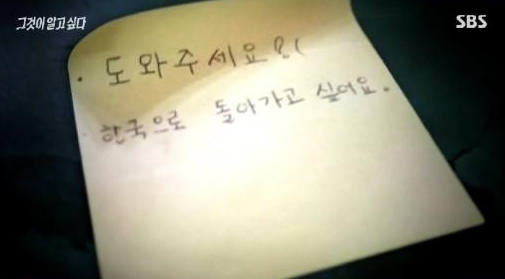 그것이 알고싶다
SBS
· 도와주세요!!
· 한국으로 돌아가고 싶어요.